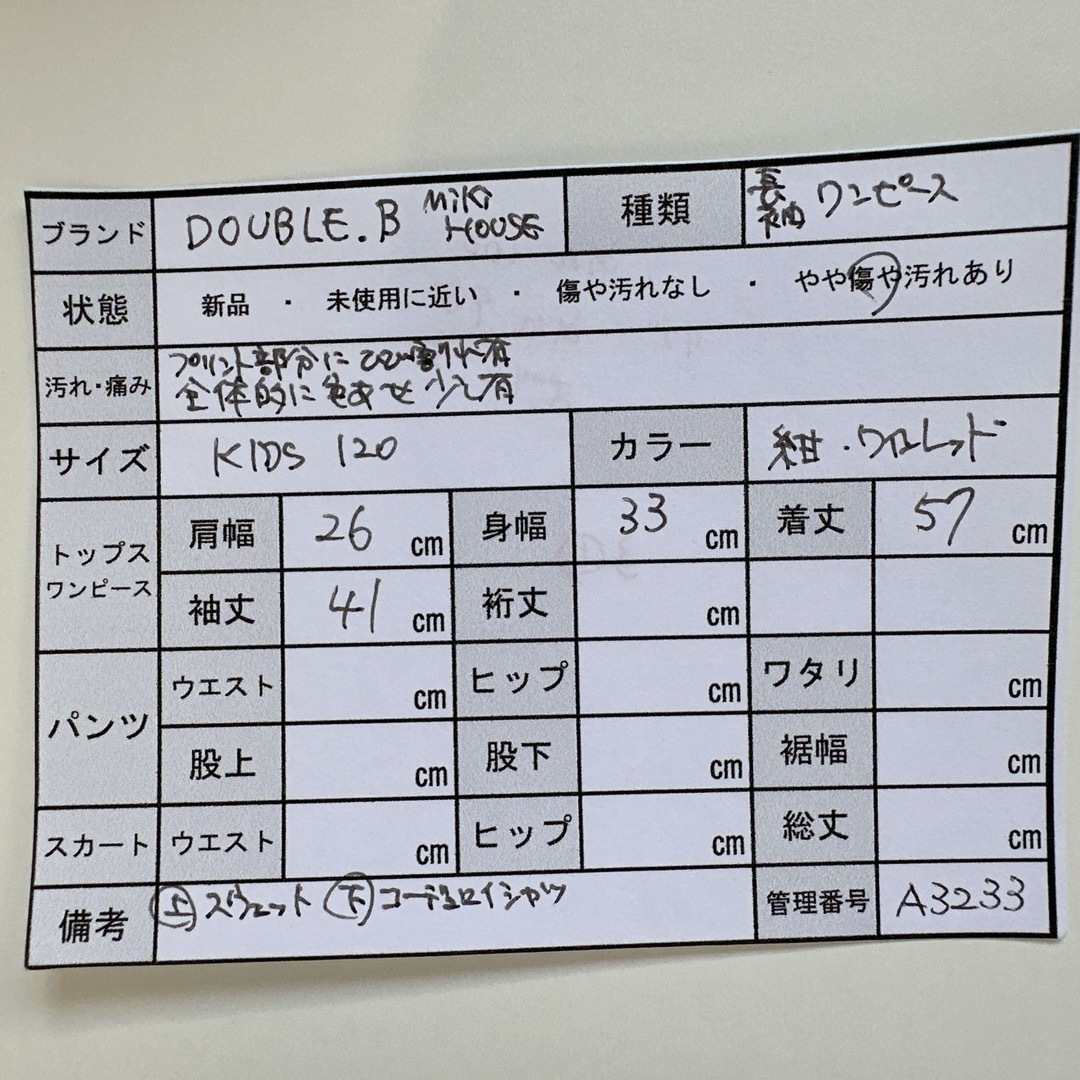 ブランド DOUBLE.B MIKI HOUSE 種類 長袖 ワンピース
状態 新品 ・ 未使用に近い ・ 傷や汚れなし ・ やや傷や汚れあり
汚れ・痛み プリント部分にひび割れ有
全体的に色あせ少し有
サイズ KIDS 120 カラー 紺・ワイン
トップス ワンピース 肩幅 26 cm 身幅 33 cm 着丈 57 cm
袖丈 41 cm 裄丈 cm
パンツ ウエスト cm ヒップ cm ワタリ cm
股上 cm 股下 cm 裾幅 cm
スカート ウエスト cm ヒップ cm 総丈 cm
備考 上 スウェット 下 管理番号 A3233